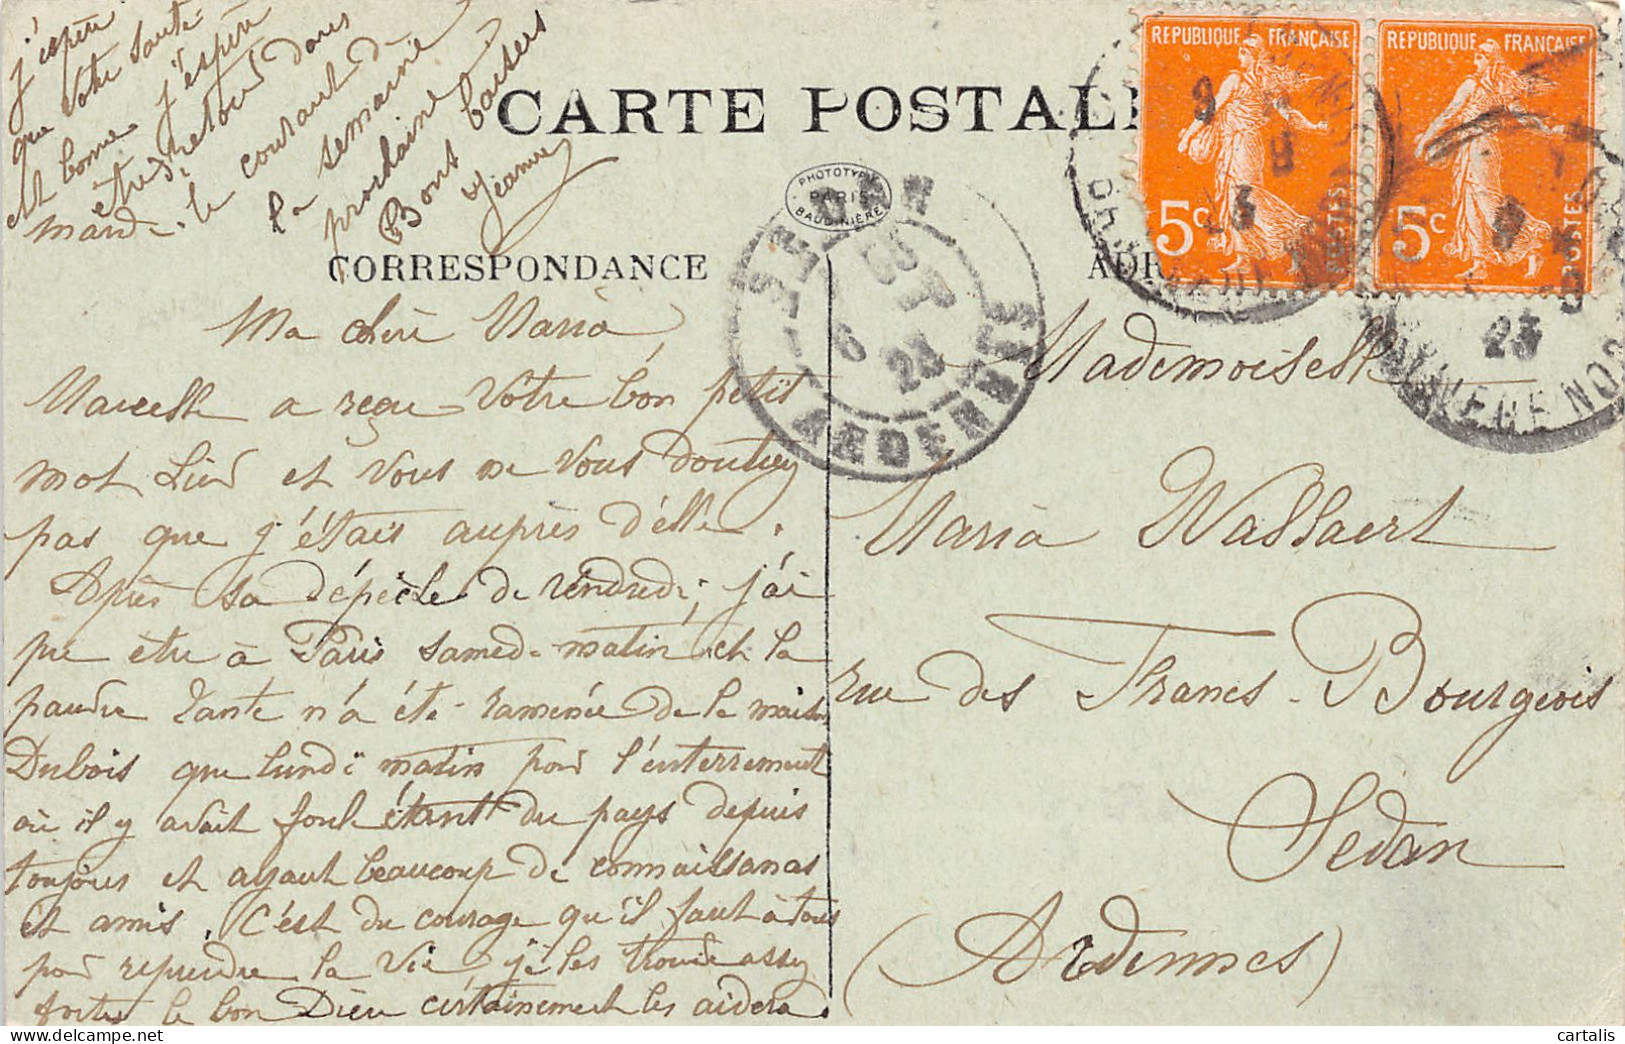 CARTE POSTALE
CORRESPONDANCE
PHOTOTYPIE
PARIS
BAUDINIÈRE
REPUBLIQUE FRANÇAISE
5c
POSTES
REPUBLIQUE FRANÇAISE
5c
POSTES
SEDAN
6
23
ARDENNES
23
Ma chère Maria,
Marcelle a reçu votre bon petit
mot hier et vous ne vous doutiez
pas que j'étais auprès d'elle.
Après sa dépêche de vendredi, j'ai
pu être à Paris samedi matin et la
pauvre tante n'a été ramenée de la maison
Dubois que lundi matin pour l'enterrement
où il y avait foule étant du pays depuis
toujours et ayant beaucoup de connaissances
et amis. C'est du courage qu'il faut à tous
pour reprendre la vie, je les trouve assez
fortes le bon Dieu certainement les aidera.
j'espère
que votre santé
est bonne j'espère
être de retour dans
le courant de
la semaine
prochaine
Bons baisers
Jeanne
Mademoiselle
Maria Wallaert
rue des Francs-Bourgeois
Sedan
(Ardennes)
cartalis